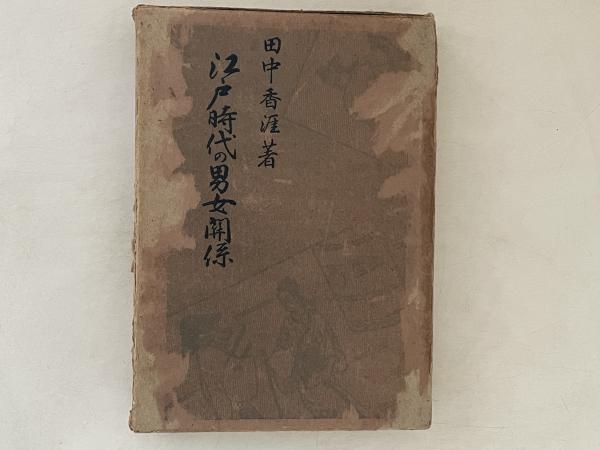 田中香涯著
江戸時代の男女関係